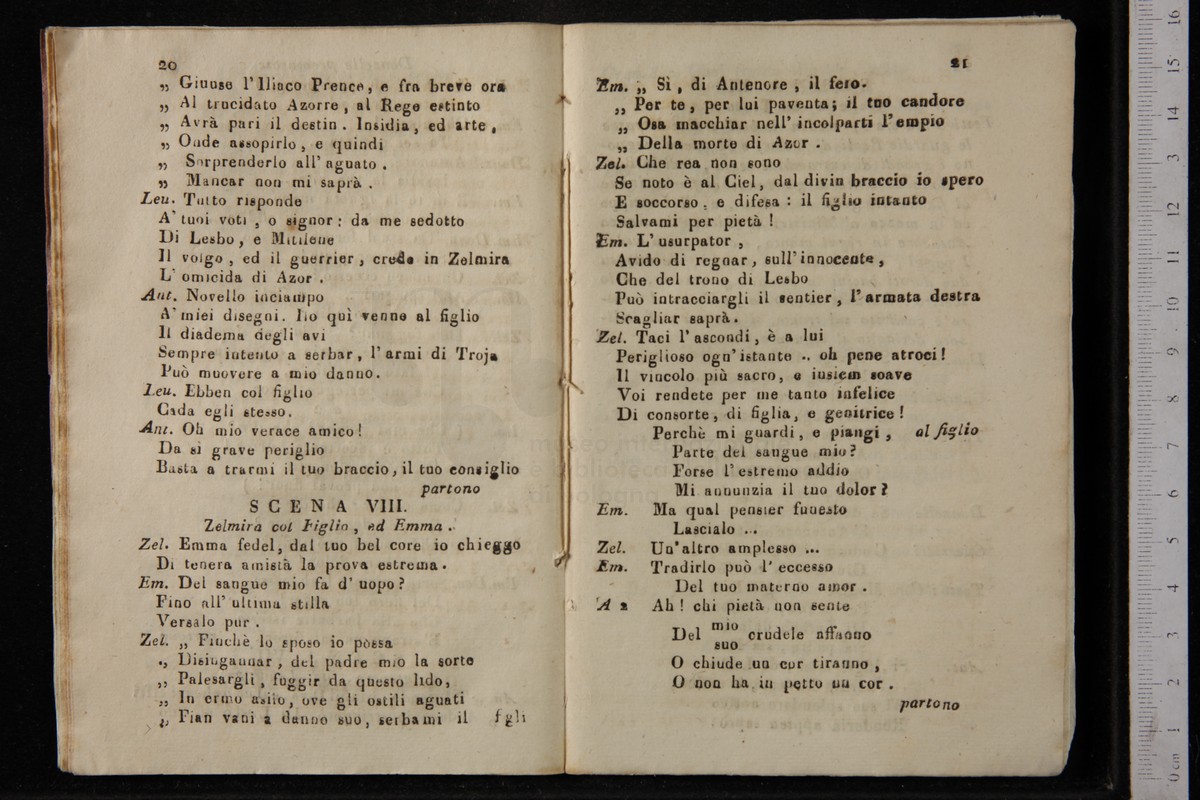 20
„ Giunse l'Iliaco Prence, e fra breve ora
„ Al trucidato Azorre, al Rege estinto
„ Avrà pari il destin. Insidia, ed arte,
„ Onde assopirlo, e quindi
„ Sorprenderlo all' aguato.
„ Mancar non mi saprà.
Leu. Tutto risponde
A' tuoi voti, o signor: da me sedotto
Di Lesbo, e Mitilene
Il volgo, ed il guerrier, crede in Zelmira
L' omicida di Azor.
Ant. Novello inciampo
A' miei disegni. Ilo quì venne al figlio
Il diadema degli avi
Sempre intento a serbar, l'armi di Troja
Può muovere a mio danno.
Leu. Ebben col figlio
Cada egli stesso.
Ant. Oh mio verace amico!
Da sì grave periglio
Basta a trarmi il tuo braccio, il tuo consiglio
partono
SCENA VIII.
Zelmira col Figlio, ed Emma.
Zel. Emma fedel, dal tuo bel core io chieggo
Di tenera amistà la prova estrema.
Em. Del sangue mio fa d' uopo?
Fino all' ultima stilla
Versalo pur.
Zel. „ Finchè lo sposo io possa
„ Disingannar, del padre mio la sorte
„ Palesargli, fuggir da questo lido,
„ In ermo asilo, ove gli ostili aguati
„ Fian vani a danno suo, serbami il figli
21
Em. „ Sì, di Antenore, il fero.
„ Per te, per lui paventa; il tuo candore
„ Osa macchiar nell' incolparti l'empio
„ Della morte di Azor.
Zel. Che rea non sono
Se noto è al Ciel, dal divin braccio io spero
E soccorso, e difesa: il figlio intanto
Salvami per pietà!
Em. L' usurpator,
Avido di regnar, sull'innocente,
Che del trono di Lesbo
Può intracciargli il sentier, l'armata destra
Scagliar saprà.
Zel. Taci l'ascondi, è a lui
Periglioso ogn'istante .. oh pene atroci!
Il vincolo più sacro, e insiem soave
Voi rendete per me tanto infelice
Di consorte, di figlia, e genitrice!
Perchè mi guardi, e piangi, al figlio
Parte del sangue mio?
Forse l'estremo addio
Mi annunzia il tuo dolor?
Em. Ma qual pensier funesto
Lascialo ...
Zel. Un'altro amplesso ...
Em. Tradirlo può l' eccesso
Del tuo materno amor.
A 2 Ah! chi pietà non sente
Del mio crudele affanno
suo
O chiude un cor tiranno,
O non ha in petto un cor.
partono